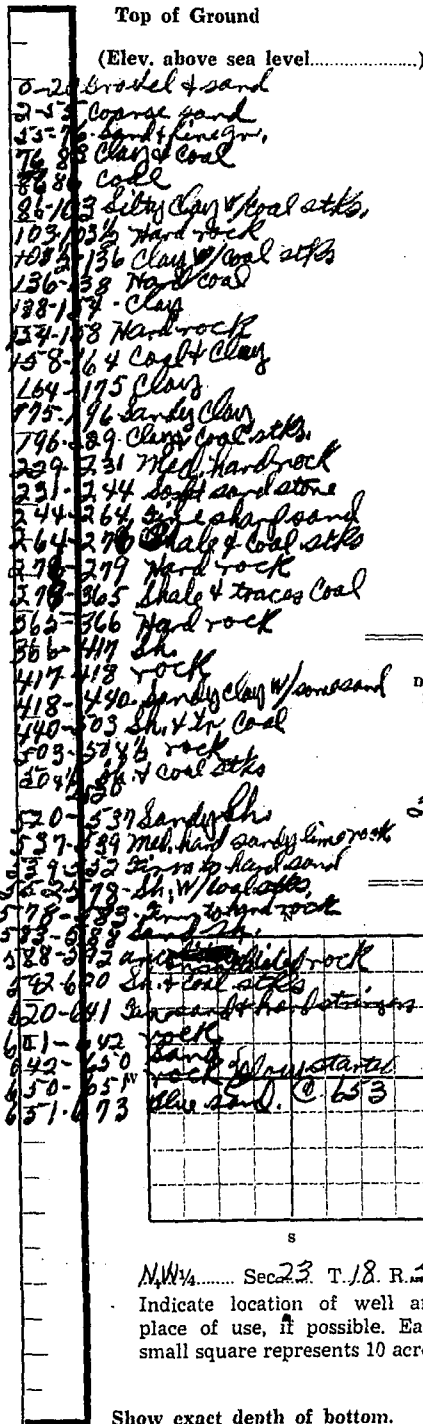 Top of Ground
(Elev. above sea level....................)
0-2 Gravel & sand
2-55 Coarse sand
55-76 Sand & fine gr.
76 83 Clay & coal
83 86 coal
86-103 Silty Clay w/coal stks.
103-103½ Hard rock
103½-136 Clay w/coal stks
136-138 Hard coal
138-154 - Clay
154-158 Hard rock
158-164 Coal & Clay
164-175 Clay
175-196 Sandy Clay
196-229 Clay & coal stks.
229-231 Med. hard rock
231-244 Soft sand stone
244-264 fine sharp sand
264-278 Shale & Coal stks
278-279 Hard rock
279-365 Shale & traces Coal
365-366 Hard rock
366-417 Sh.
417-418 rock
418-440 Sandy clay w/ some sand
440-503 Sh. & Tr Coal
503-504½ rock
504½ Sh. & coal stks
520
520-537 Sandy Sh.
537-539 Med. hard sandy lime rock
539-552 Firm to hard sand
552-578 - Sh. w/ coal stks,
578-583 - Firm to hard rock
583-588 Sandy Sh.
588-592 rock
592-620 Sh. & coal stks
620-641 Fir sand & hard stringers
641-642 rock
642-650 Sand
650-651 rock Flow started
651-673 Blue sand. @ 653
W
S
N.W¼........ Sec. 23. T. 18. R.
Indicate location of well
place of use, if possible.
small square represents 10
Show exact depth of bottom.